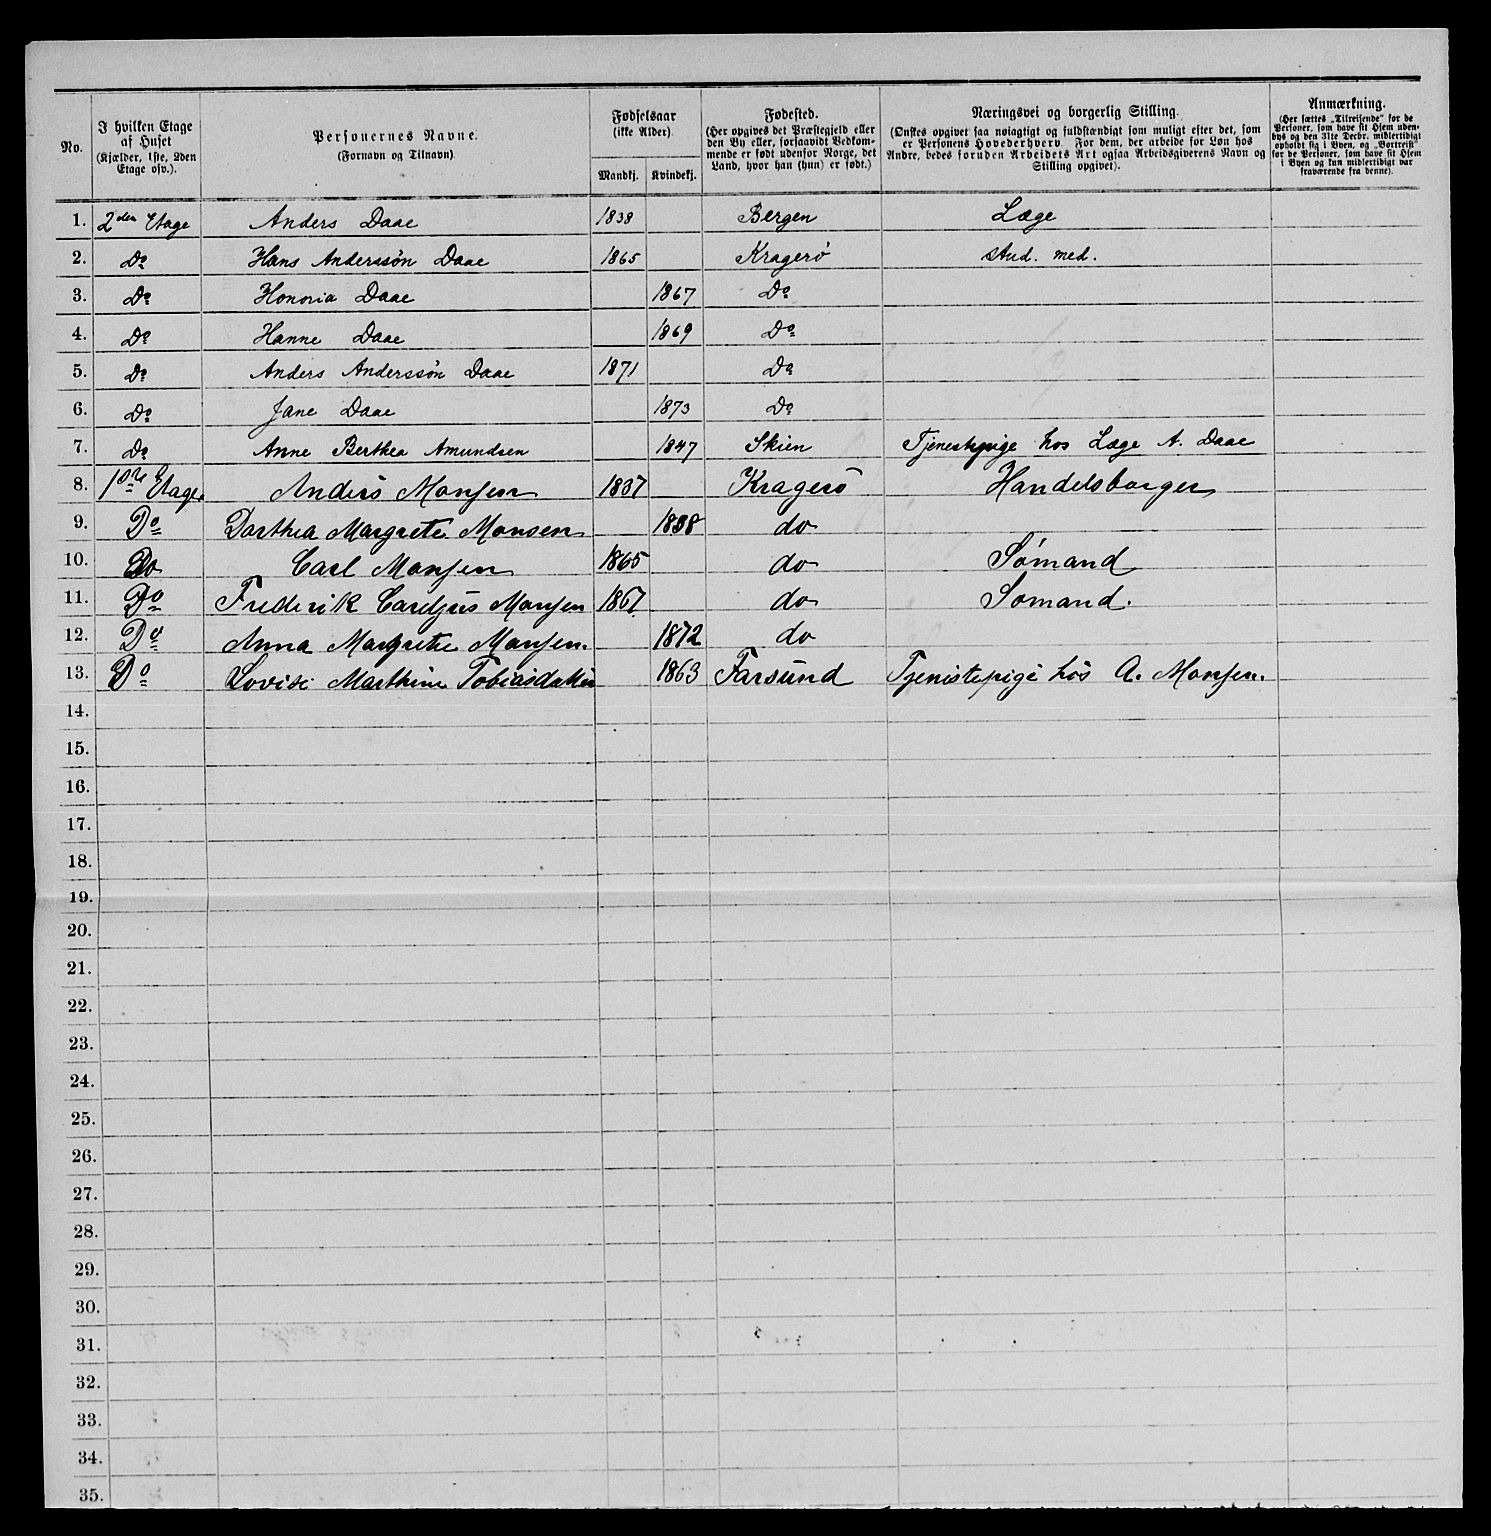 No. | I hvilken Etage af Huset (Kjælder, 1ste, 2den Etage osv.). | Personernes Navne. (Fornavn og Tilnavn) | Fødselsaar (ikke Alder). Mandkj. | Kvindekj. | Fødested. (Her opgives det Præstegjeld eller den By eller, forsaavidt Vedkommende er født udenfor Norge, det Land, hvor han (hun) er født.) | Næringsvei og borgerlig Stilling. (Ønskes opgivet saa nøiagtigt og fuldstændigt som muligt efter det, som er Personens Hovederhverv. For dem, der arbeide for Løn hos Andre, bedes foruden Arbeidets Art ogsaa Arbeidsgiverens Navn og Stilling opgivet). | Anmærkning. (Her sættes „Tilreisende“ for de Personer, som have sit Hjem udenbys og den 31te Decbr. midlertidigt opholdt sig i Byen, og „Bortreist“ for de Personer, som have sit Hjem i Byen og kun midlertidigt var fraværende fra denne).
1. 2den Etage Anders Daae 1838 Bergen Læge
2. Do Hans Anderssøn Daae 1865 Kragerø stud. med.
3. Do Honoria Daae 1867 Do
4. Do Hanne Daae 1869 Do
5. Do Anders Anderssøn Daae 1871 Do
6. Do Jane Daae 1873 Do
7. Do Anne Berthea Amundsen 1847 Skien Tjenestepige hos Læge A. Daae
8. 1ste Etage. Anders Monsen 1837 Kragerø Handelsborger
9. Do Dorthea Margrete Monsen 1838 do
10. Do Carl Monsen 1865 do Sømand
11. Do Frederik Careljus Monsen 1867 do Somand.
12. Do Anna Margrethe Monsen. 1872 do
13. Do Lovise Marthine Tobiasdatter 1863 Farsund Tjenistepige hos A. Monsen.
14.
15.
16.
17.
18.
19.
20.
21.
22.
23.
24.
25.
26.
27.
28.
29.
30.
31.
32.
33.
34.
35.